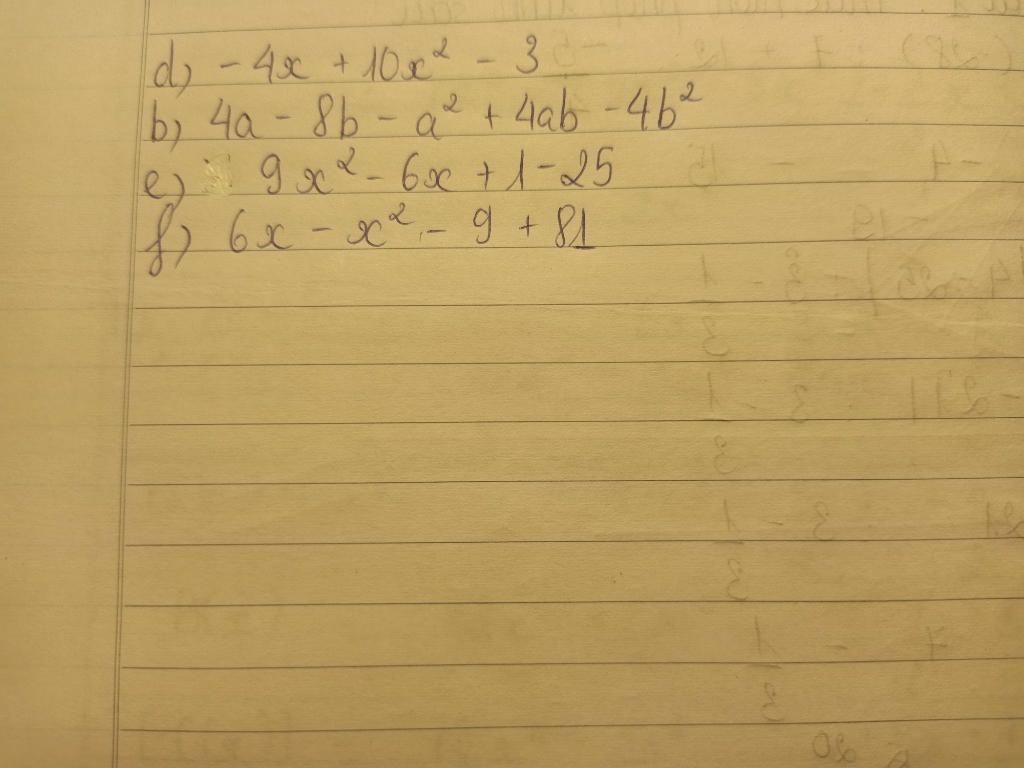 d) - 4x + 10x² - 3
b) 4a - 8b - a² + 4ab - 4b²
e) 9x² - 6x + 1 - 25
f) 6x - x² - 9 + 81